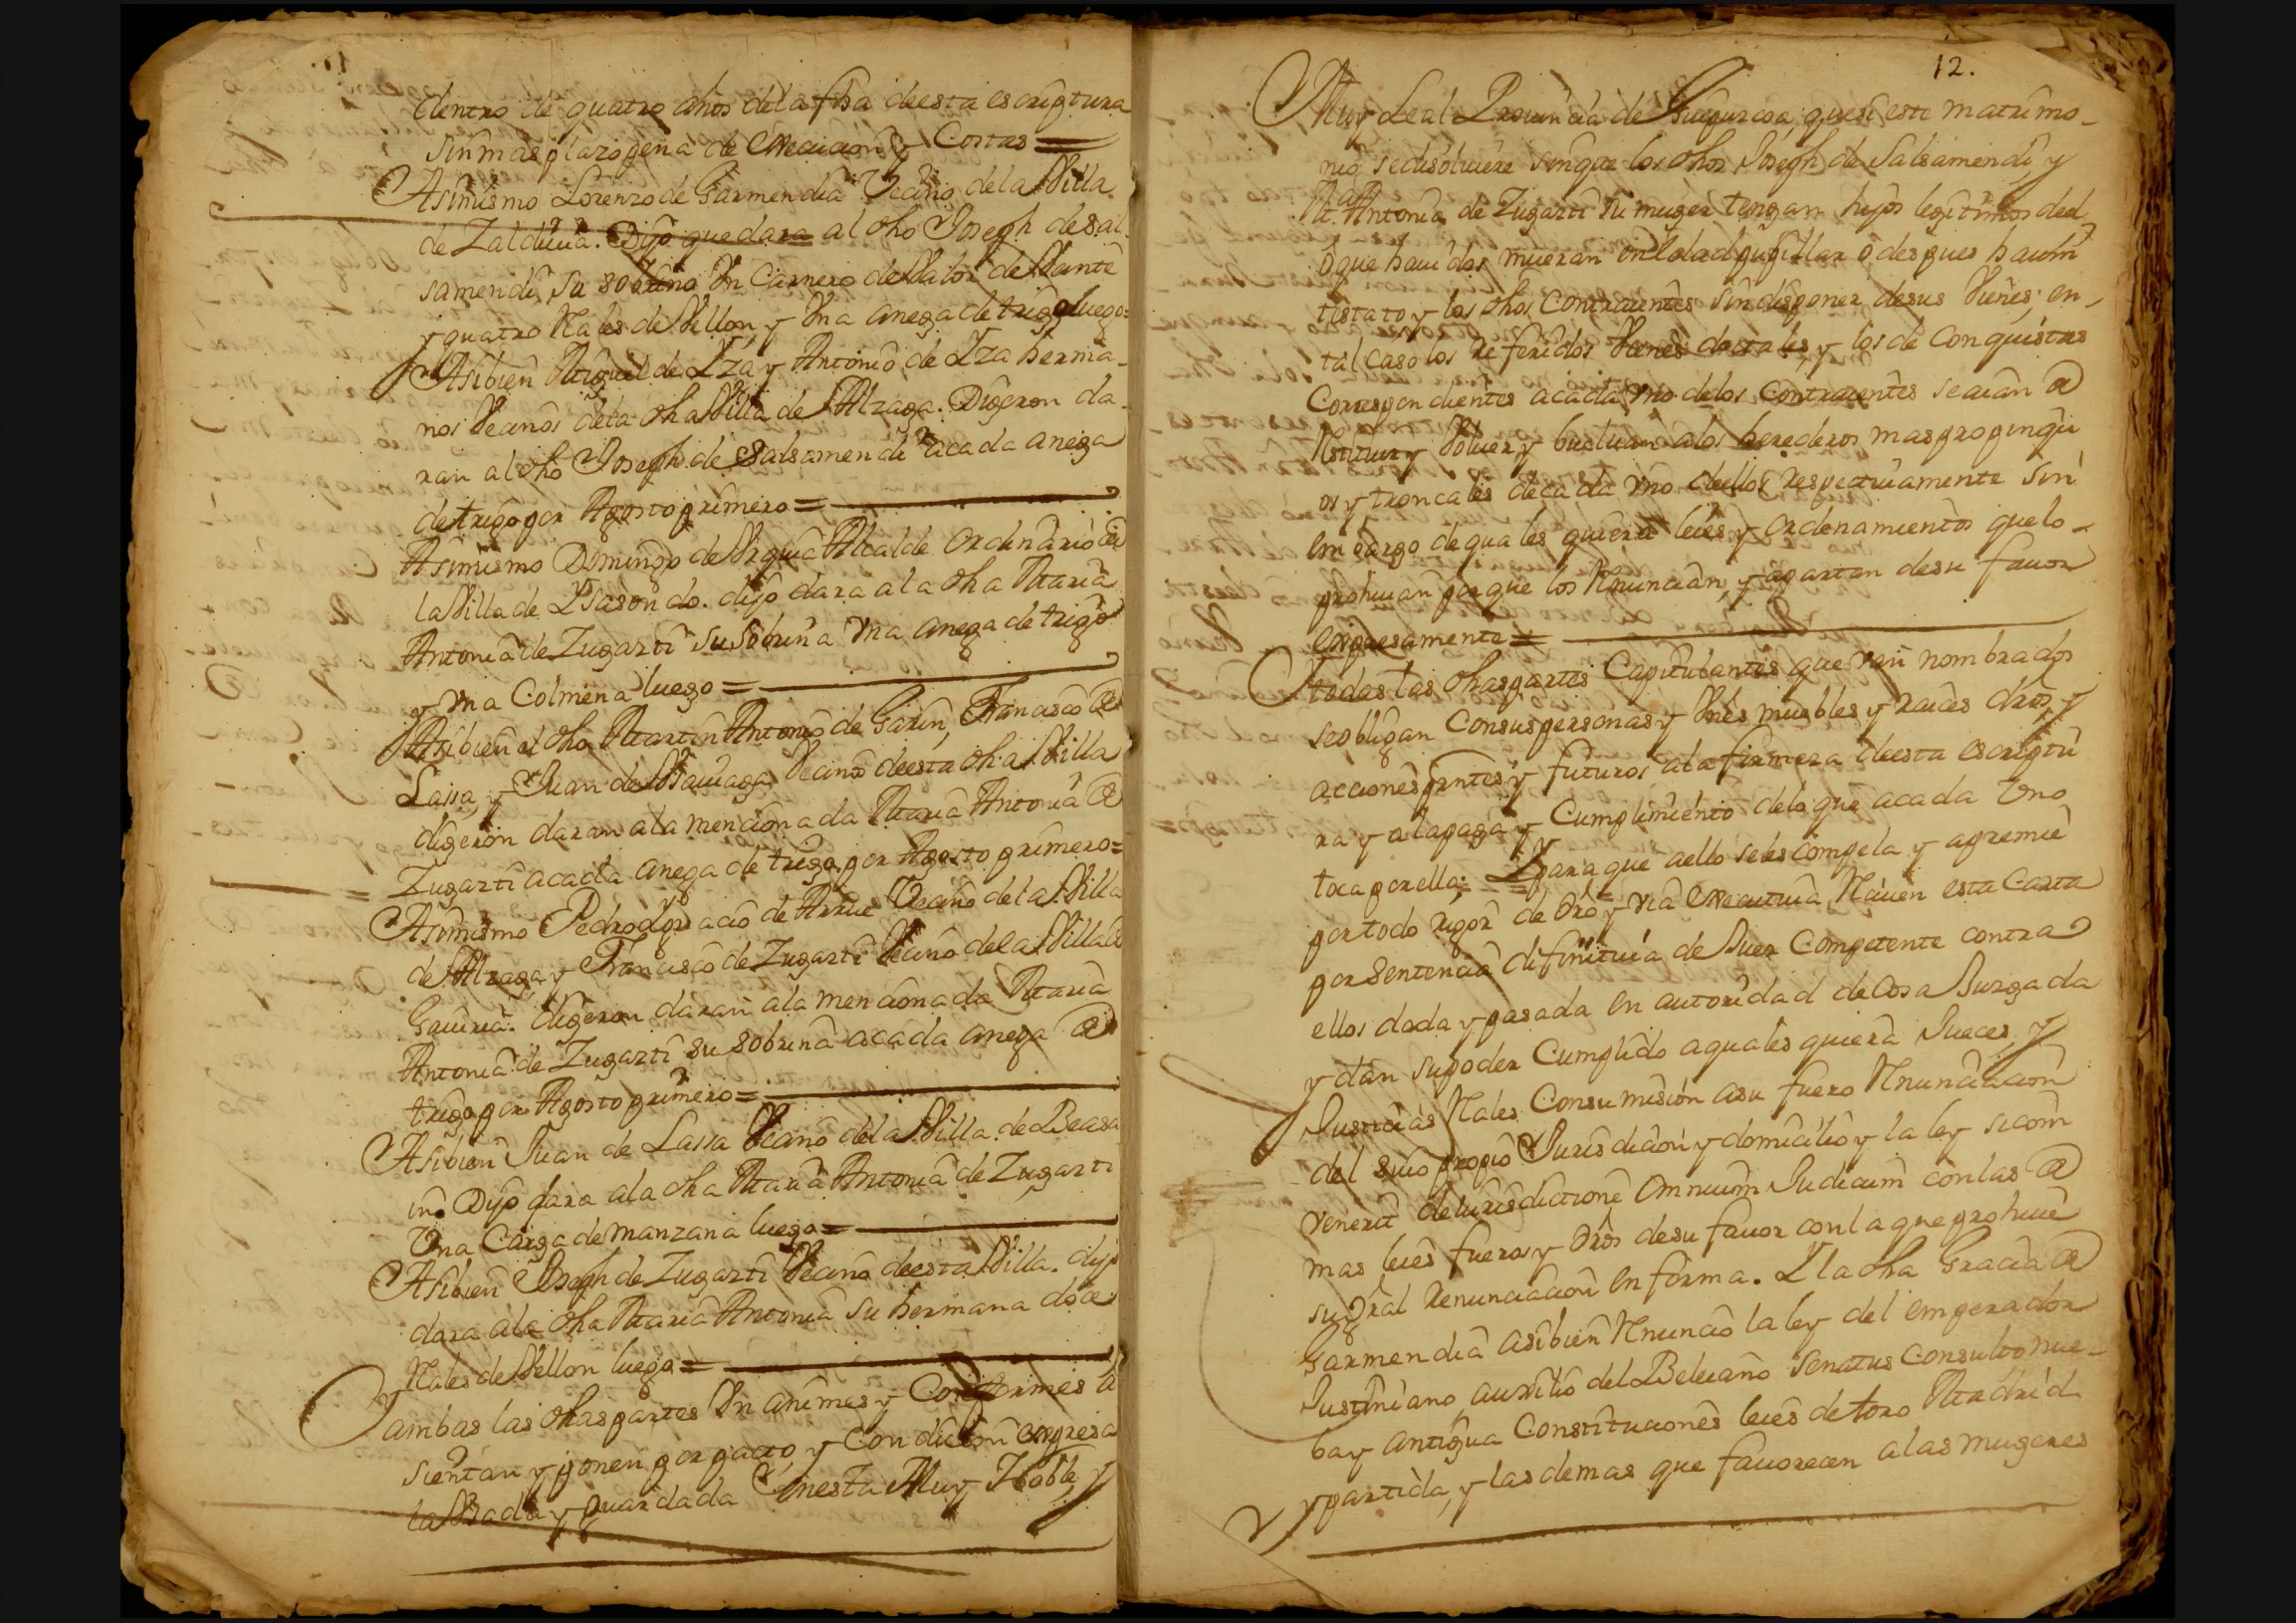 dentro de quatro años dela fha deesta escriptura
sin mas plazo pena de execucion y Costas =
Asimismo Lorenzo de Garmendia Vecino dela Villa
de Zaldiuia. Dijo que dara al dho Joseph de Sal-
samendi su sobrino Un Carnero de Valor de Veinte
y quatro Rales de Vellon y Una anega de trigo luego =
Asibien Miguel de Yza y Antonio de Yza herma-
nos Vecinos dela dha Villa de Alzaga. Digeron da-
ran al dho Joseph de Salsamendi acada anega
de trigo por Agosto primero =
Asimismo Domingo de Vrquia Alcalde ordinario de
la Villa de Ysasondo. dijo dara ala dha Maria
Antonia de Zugarti su sobrina Vna anega de trigo
y Vna Colmena luego =
Asibien el dho Martin Antonio de Garin, Francisco de
Lasa, y Juan de Vsauiaga Vecinos deesta dha Villa
digeron daran ala mencionada Maria Antonia de
Zugarti acada anega de trigo por Agosto primero =
Asimismo Pedro Ygnacio de Arrue Vecino dela Villa
de Alzaga y Francisco de Zugarti Vecino dela Villa de
Gauiria. digeron daran ala mencionada Maria
Antonia de Zugarti su sobrina acada anega de
trigo por Agosto primero =
Asibien Juan de Lasa Vecino dela Villa de Beasa
in. Dijo dara ala dha Maria Antonia de Zugarti
Una Carga de manzana luego =
Asibien Joseph de Zugarti Vecino deesta Villa. dijo
dara ala dha Maria Antonia su hermana doce
Rales de Vellon luego =
Y ambas las dhas partes Vnanimes y Conformes a
sientan y ponen por pacto y Condicion expresa
la Vsada y guardada Enesta Muy Noble, y
12.
Muy Leal Prouincia de Guipuzcoa, que si este matrimo-
nio se disoluiere sinque los dhos Joseph de Salsamendi, y
Ma. Antonia de Zugarti su muger tengan hijos legitimos del
o que hauidos mueran en la edad pupillar o despues hauin
testato y los dhos Contraientes sin disponer de sus Vienes; en
tal caso los Referidos Vienes dotales, y los de Conquistas
Correspondientes acada Vno delos Contraientes seaian de
Restituir y Voluer y bueluan alos herederos mas propinqu
os y troncales decada Vno deellos respectiuamente sin
embargo dequalesquiera leies y ordenamientos quelo-
prohiuan porque los Renuncian, y apartan desu fauor
expresamente =
Y todas las dhas partes Capitulantes que Van nombrados
se obligan Consus personas y Vnes muebles y raices dros, y
acciones pntes y futuros ala firmeza deesta escriptu
ra y ala paga y Cumplimiento delo que acada Vno
toca por ella; Y para que aello seles compela y apremie
portodo rigor de dro y via executiua Reciuen esta Carta
por Sentencia difinitiua de Juez Competente contra
ellos dada y pasada en autoridad de Cosa Juzgada
y dan supoder Cumplido aqualesquiera Jueces, y
Justicias Rales Consumision asu fuero Renunciacion
del suio propio Jurisdicion y domicilio y la ley sicom
venerit de iurisdictione omnium Judicum conlas de
mas leies fueros y dros desu fauor conla que prohiue
su gral renunciacion en forma. Y la dha Gracia de
Garmendia asibien Renuncio la ley del emperador
Justiniano, auxilio del Beleiano Senatus Consulto nue-
ba y antigua Constituciones leies de toro Madrid
y partida, y las demas que fauorecen alas mugeres